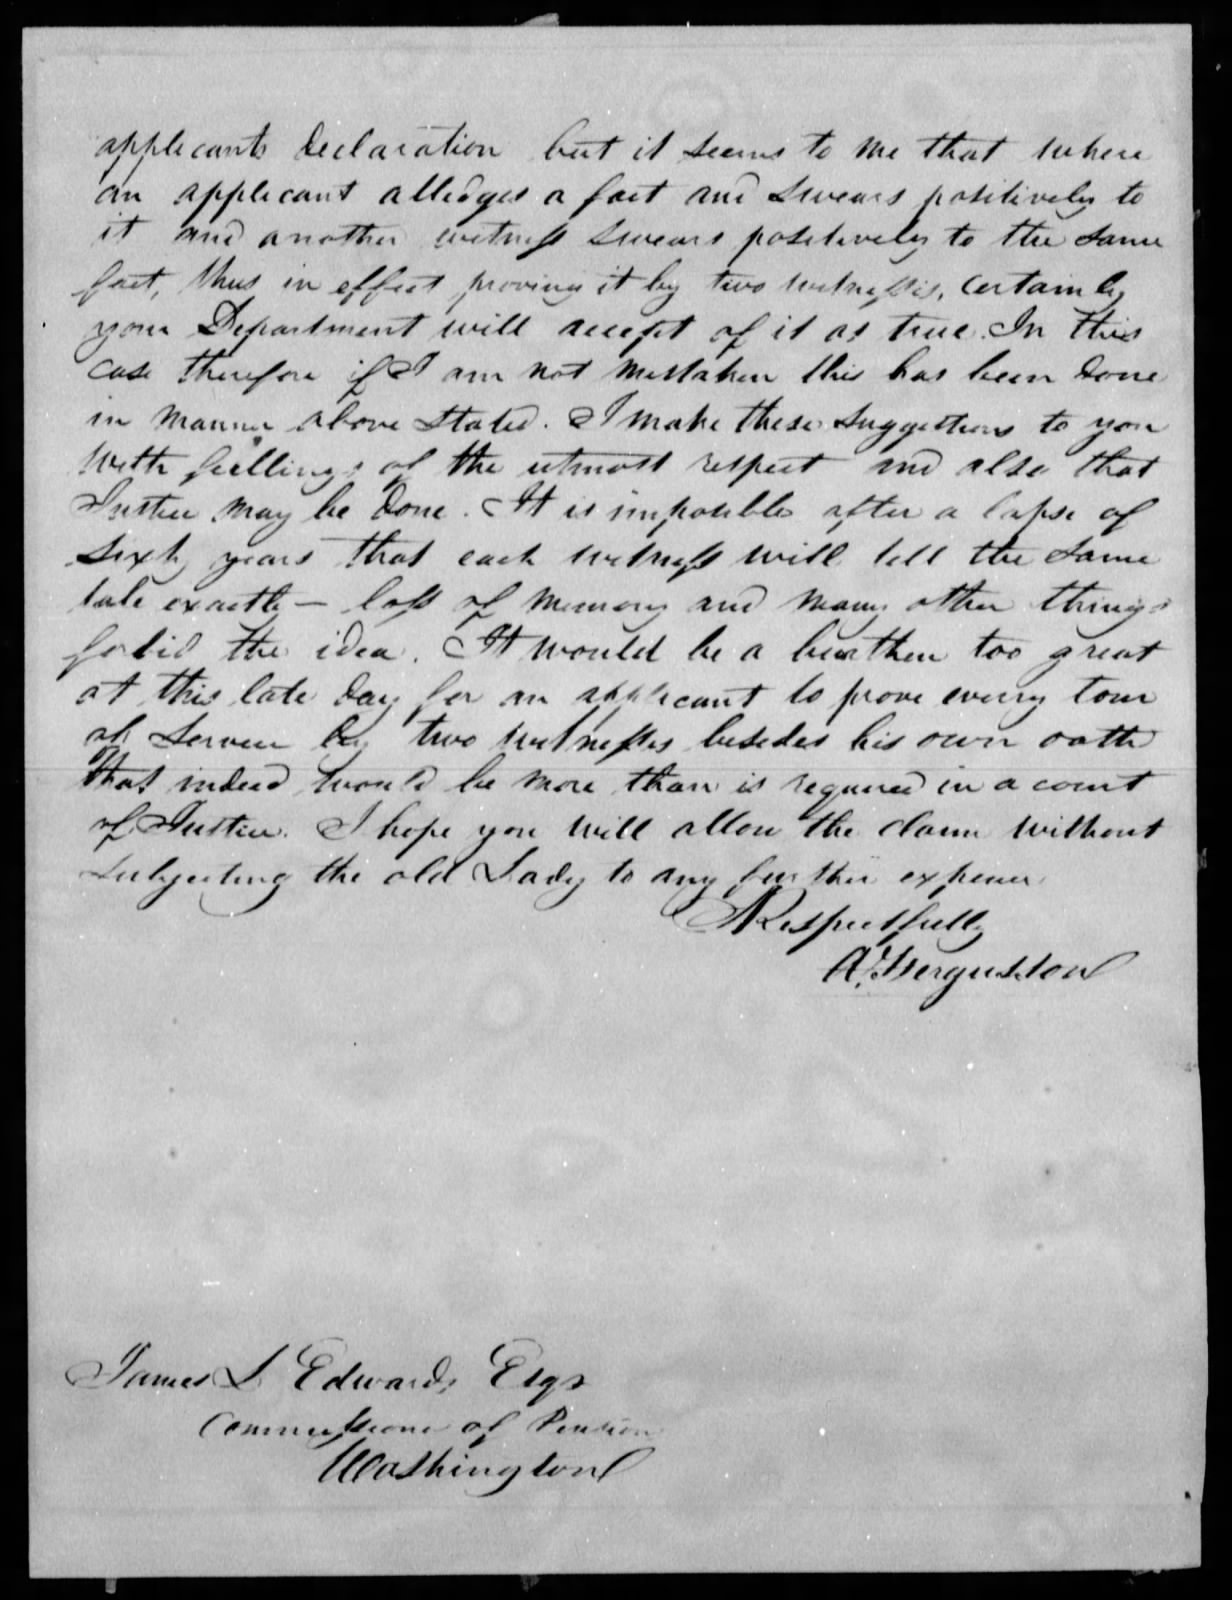 applicants declaration but it seems to me that where
an applicant alledges a fact and swears positively to
it and another witness swears positively to the same
fact, thus in effect proving it by two witnesses, certainly
your Department will accept of it as true. In this
case therefore if I am not mistaken this has been done
in manner above stated. I make these suggestions to you
with feellings of the utmost respect and also that
Justice may be done. It is imposible after a lapse of
sixty years that each witness will tell the same
tale exactly — loss of memory and many other things
forbid the idea. It would be a burthen too great
at this late day for an applicant to prove every tour
of service by two witnesses besides his own oath
that indeed would be more than is required in a court
of Justice. I hope you will allow the claim without
subjecting the old Lady to any further expence
Respectfully
A. Ferguston
James L Edwards Esqr
Commissioner of Pension
Washington